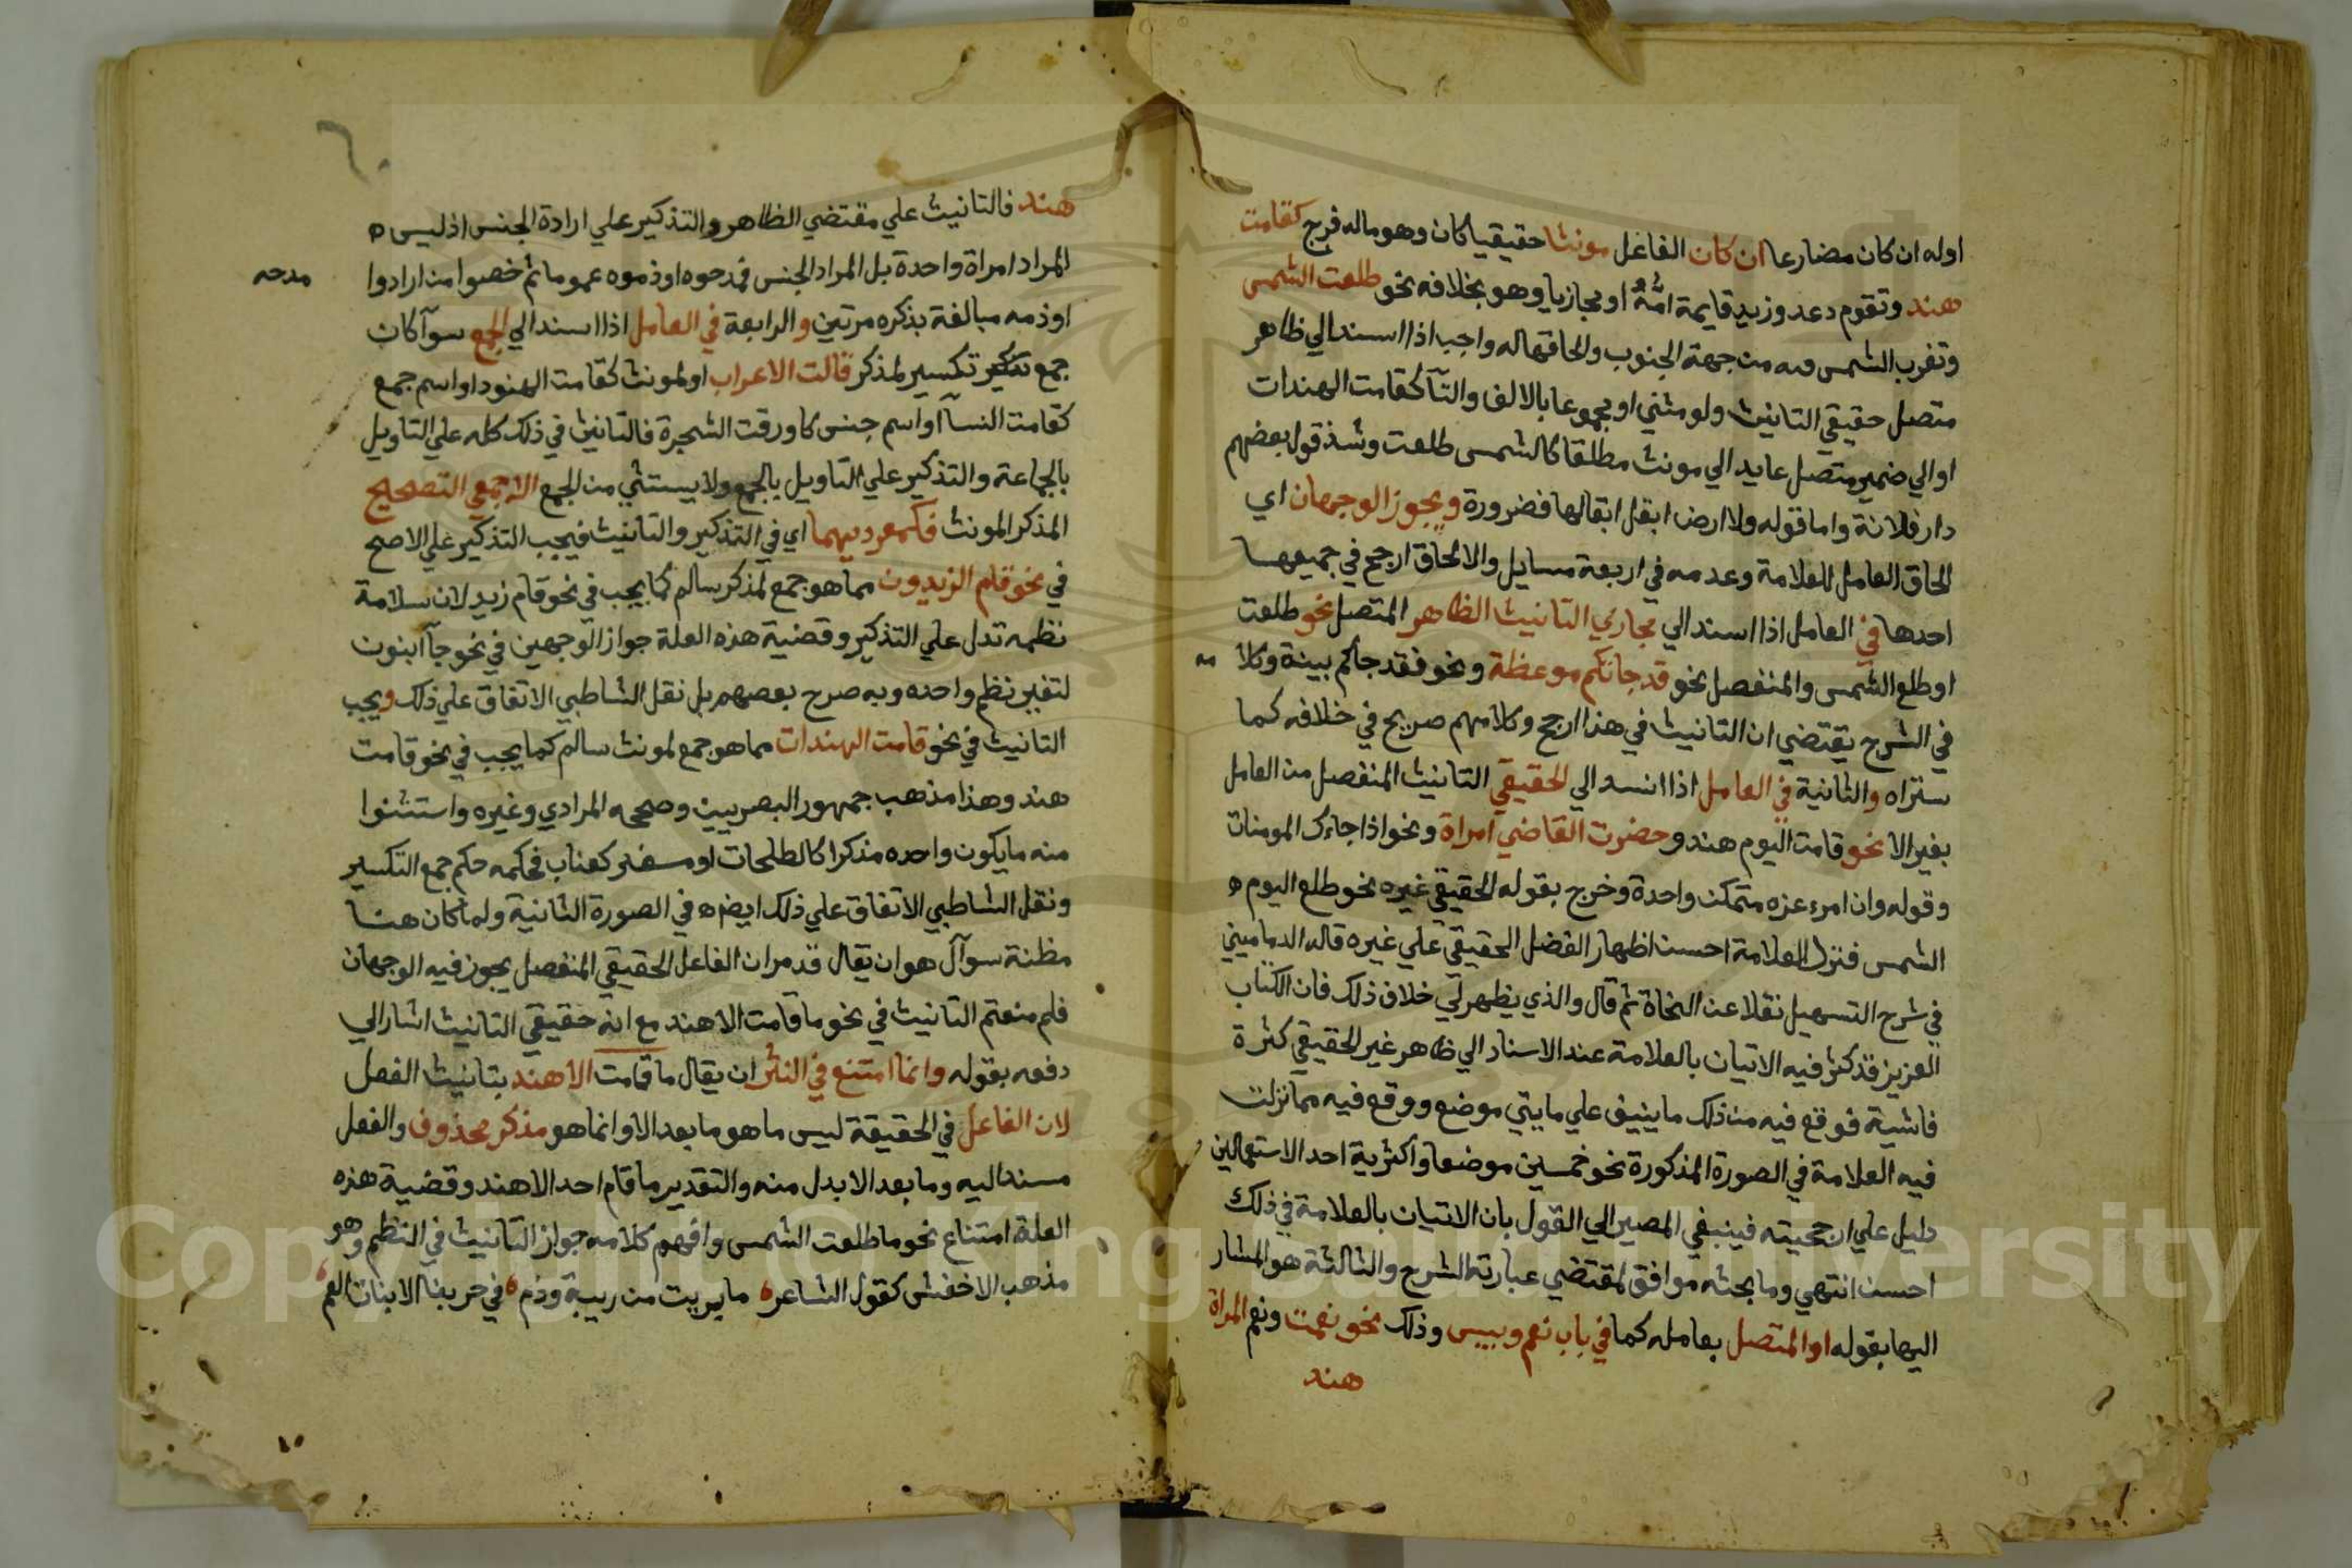 اوله ان كان مضارعا ان كان الفاعل مونثا حقيقيا كان وهو ماله فرج كقامت
هند وتقوم دعد وزيد قايمة امُّهُ او مجازيا وهو بخلافه نحو طلعت الشمس
وتغرب الشمس من جهة الجنوب ولحاقها له واجب اذا اسند الي ظاهر
متصل حقيقي التانيث ولو مثني او مجموعا بالالف والتآ كقامت الهندات
او الي ضمير متصل عايد الي مونث مطلقا كالشمس طلعت وشذ قول بعضهم
دار فلانة واما قوله ولا ارض ابقل ابقالها فضرورة ويجوز الوجهان اي
الحاق العامل للعلامة وعدمه في اربعة مسايل والالحاق ارجح في جميعها
احدها في العامل اذا اسند الي مجازي التانيث الظاهر المتصل نحو طلعت
او طلع الشمس والمنفصل نحو قد جاتكم موعظة ونحو فقد جاكم بينة وكلا
مه
في الشرح يقتضي ان التانيث في هذا ارجح وكلامهم صريح في خلافه كما
ستراه والثانية في العامل اذا اسند الي الحقيقي التانيث المنفصل من العامل
بغير الا نحو قامت اليوم هند وحضرت القاضي امراة ونحو اذا جاءك المومنات
وقوله وان امرء عزه متمكن واحدة وخرج بقوله الحقيقي غيره نحو طلع اليوم ه
الشمس فترك العلامة احسن اظهار الفضل الحقيقي علي غيره قاله الدماميني
في شرح التسهيل نقلا عن النحاة ثم قال والذي يظهر لي خلاف ذلك فان الكتاب
العزيز قد كثر فيه الاتيان بالعلامة عند الاسناد الي ظاهر غير الحقيقي كثرة
فاشية فوقع فيه من ذلك ما ينيف علي مايتي موضع ووقع فيه مما نزلت
فيه العلامة في الصورة المذكورة نحو خمسين موضعا واكثرية احد الاستعمالين
دليل علي ارجحيته فينبغي المصير الي القول بان الاتيان بالعلامة في ذلك
احسن انتهي وما بحثه موافق لمقتضي عبارة الشرح والثالثة هو المشار
اليها بقوله او المتصل بعامله كما في باب نعم وبيس وذلك نحو نعمت ونعم المراة
هند
هند فالتانيث علي مقتضي الظاهر والتذكير علي ارادة الجنس اذ ليس ه
المراد امراة واحدة بل المراد الجنس فمدحوه او ذموه عموما ثم خصوا من ارادوا
مدحه
او ذمه مبالغة بذكره مرتين والرابعة في العامل اذا اسند الي الجمع سوآ كان
جمع تكسير لمذكر قالت الاعراب او لمونث كقامت الهنود او اسم جمع
كقامت النسآ او اسم جنس كاورقت الشجرة فالتانيث في ذلك كله علي التاويل
بالجماعة والتذكير علي التاويل بالجمع ولا يستثني من الجمع الا جمعي التصحيح
المذكر المونث فكمفرديهما اي في التذكير والتانيث فيجب التذكير علي الاصح
في نحو قام الزيدون مما هو جمع لمذكر سالم كما يجب في نحو قام زيد لان سلامة
نظمه تدل علي التذكير وقضية هذه العلة جواز الوجهين في نحو جآ البنون
لتغير نظم واحده وبه صرح بعضهم بل نقل الشاطبي الاتفاق علي ذلك ويجب
التانيث في نحو قامت الهندات مما هو جمع لمونث سالم كما يجب في نحو قامت
هند وهذا مذهب جمهور البصريين وصححه المرادي وغيره واستثنوا
منه ما يكون واحده مذكرا كالطلحات او فحكمه حكم جمع التكسير
ونقل الشاطبي الاتفاق علي ذلك ايضه في الصورة الثانية ولما كان هنا
مظنة سوآل هو ان يقال قد مر ان الفاعل الحقيقي المنفصل يجوز فيه الوجهان
فلم منعتم التانيث في نحو ما قامت الا هند مع انه حقيقي التانيث اشار الي
دفعه بقوله وانما امتنع في النثر ان يقال ما قامت الا هند بتانيث الفعل
لان الفاعل في الحقيقة ليس ما هو ما بعد الا وانما هو مذكر محذوف والفعل
مسند اليه وما بعد الا بدل منه والتقدير ما قام احد الا هند وقضية هذه
العلة امتناع نحو ما طلعت الشمس وافهم كلامه جواز التانيث في النظم وهو
مذهب الاخفش كقول الشاعر ه ما بريت من ريبة وذم ه في حربنا الا بنات العم ه
Copyright © King Saud University